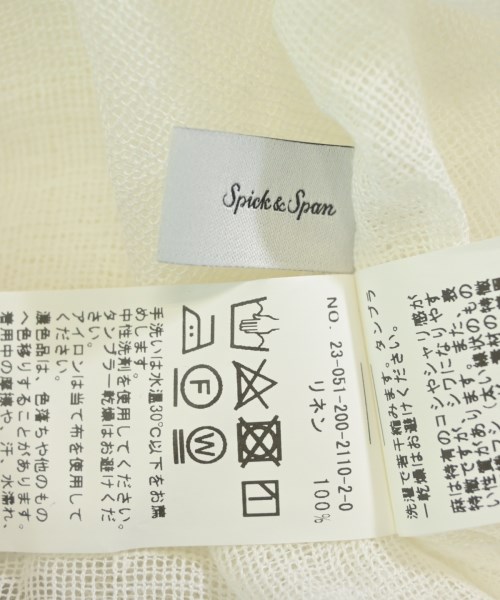 Spick & Span
NO. 23-051-200-2110-2-0
リネン 100%
F
W
手洗いは水温30℃以下をお薦
めします。
中性洗剤を使用してください。
タンブラー乾燥はお避けくだ
さい。
アイロンは当て布を使用して
ください。
濃色品は、色落ちや他のもの
へ色移りすることがあります。
着用中の摩擦や、汗、水濡れ、
洗濯で若干縮みます。タンブラ
ー乾燥はお避けください。
麻は特有のコシやシャリ感が
特徴ですが、シワになりやす
い性質があります。また、表